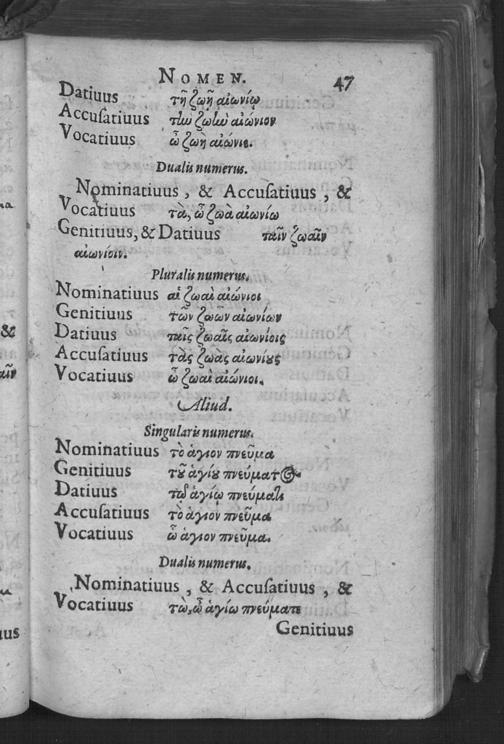 NOMEN. 47
Datiuus τῇ ζωῇ αἰωνίῳ
Accuſatiuus τὴν ζωὴν αἰώνιον
Vocatiuus ὦ ζωὴ αἰώνιε.
Dualis numerus.
Nominatiuus, & Accuſatiuus, &
Vocatiuus τὰ, ὦ ζωὰ αἰωνίω
Genitiuus, & Datiuus ταῖν ζωαῖν
αἰωνίοιν.
Pluralis numerus.
Nominatiuus αἱ ζωαὶ αἰώνιοι
Genitiuus τῶν ζωῶν αἰωνίων
Datiuus ταῖς ζωαῖς αἰωνίοις
Accuſatiuus τὰς ζωὰς αἰωνίους
Vocatiuus ὦ ζωαὶ αἰώνιοι.
Aliud.
Singularis numerus.
Nominatiuus τὸ ἅγιον πνεῦμα
Genitiuus τοῦ ἁγίου πνεύματος
Datiuus τῷ ἁγίῳ πνεύματι
Accuſatiuus τὸ ἅγιον πνεῦμα
Vocatiuus ὦ ἅγιον πνεῦμα.
Dualis numerus.
Nominatiuus, & Accuſatiuus, &
Vocatiuus τὼ, ὦ ἁγίω πνεύματε
Genitiuus